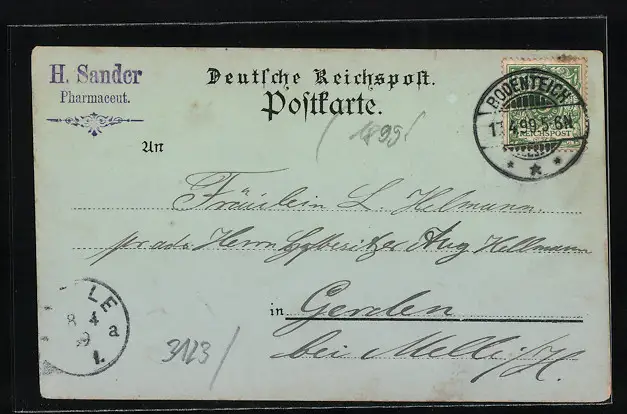 H. Sander
Pharmaceut.
Deutsche Reichspost.
Postkarte.
BODENTEICH
17.4.99.5-6N
REICHSPOST
1899
An
Fräulein L. Helmann.
pr. adr. Herrn Hofbesitzer Aug Hellmann
in Gerden
bei Melle i/H.
LE
8 4
9 a
1.
3123